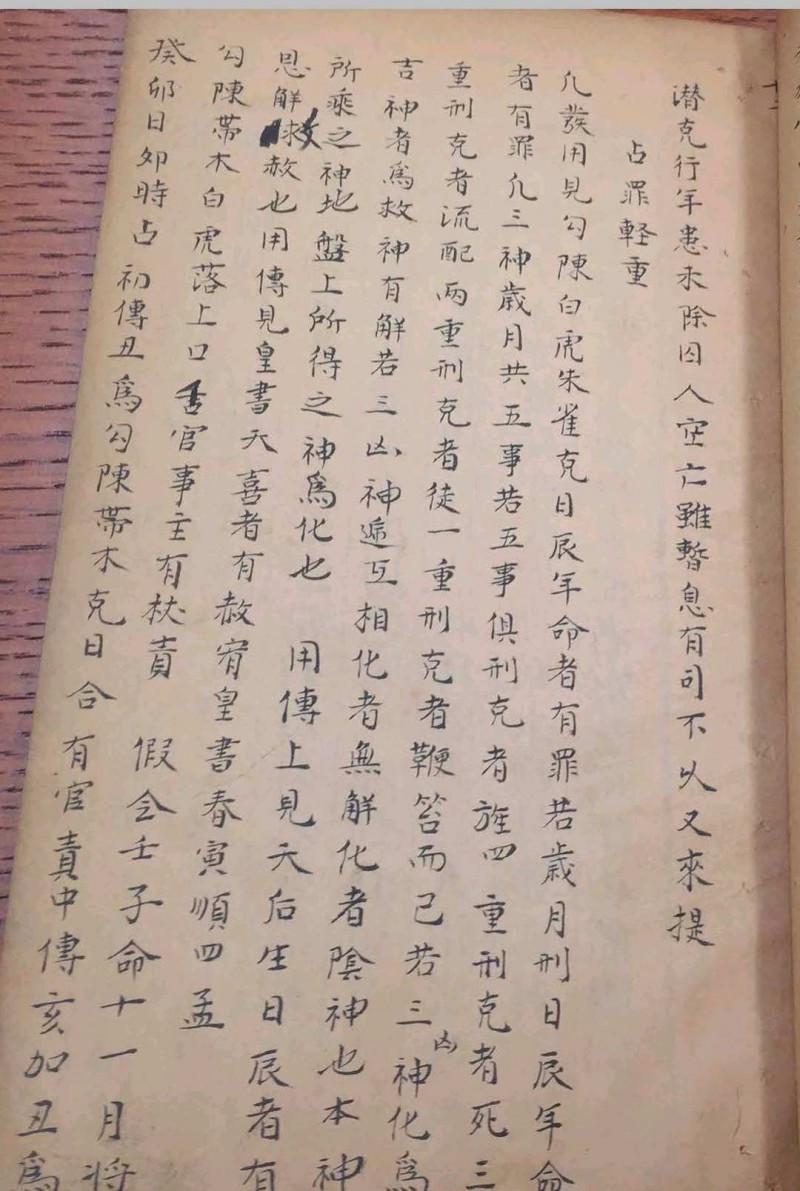 潜克行年患未除囚人空亡雖暫息有司不久又來提
占罪軽重
凡發用見勾陳白虎朱雀克日辰年命者有罪若歳月刑日辰年命
者有罪凡三神歳月共五事若五事俱刑克者旌四重刑克者死三
重刑克者流配兩重刑克者徒一重刑克者鞭笞而已若三凶神化爲
吉神者爲救神有解若三凶神遞互相化者無解化者陰神也本神
所乘之神地盤上所得之神爲化也 用傳上見天后生日辰者有
恩解救赦也用傳見皇書天喜者有赦宥皇書春寅順四孟
勾陳帶木白虎落上口舌官事主有杖責 假令壬子命十一月將
癸卯日卯時占初傳丑爲勾陳帶木克日合有官責中傳亥加丑爲